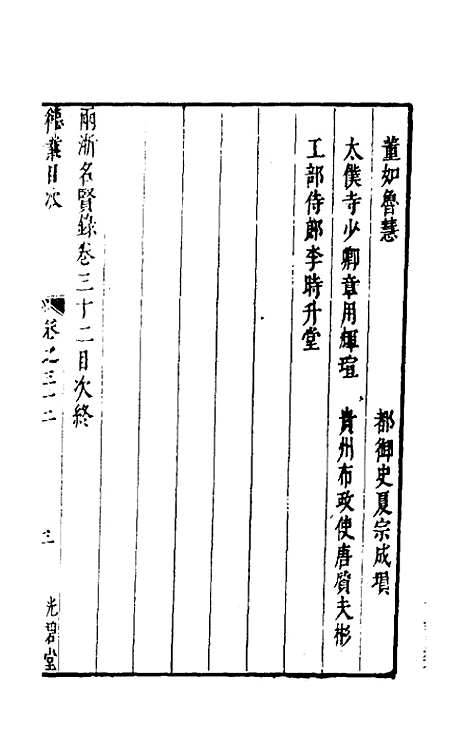 董如魯慧
都御史夏宗成塤
太僕寺少卿章用輝瑄
貴州布政使唐質夫彬
工部侍郎李時升堂
兩浙名賢錄卷三十二目次終
德業目次
卷之三十二
三
光碧堂